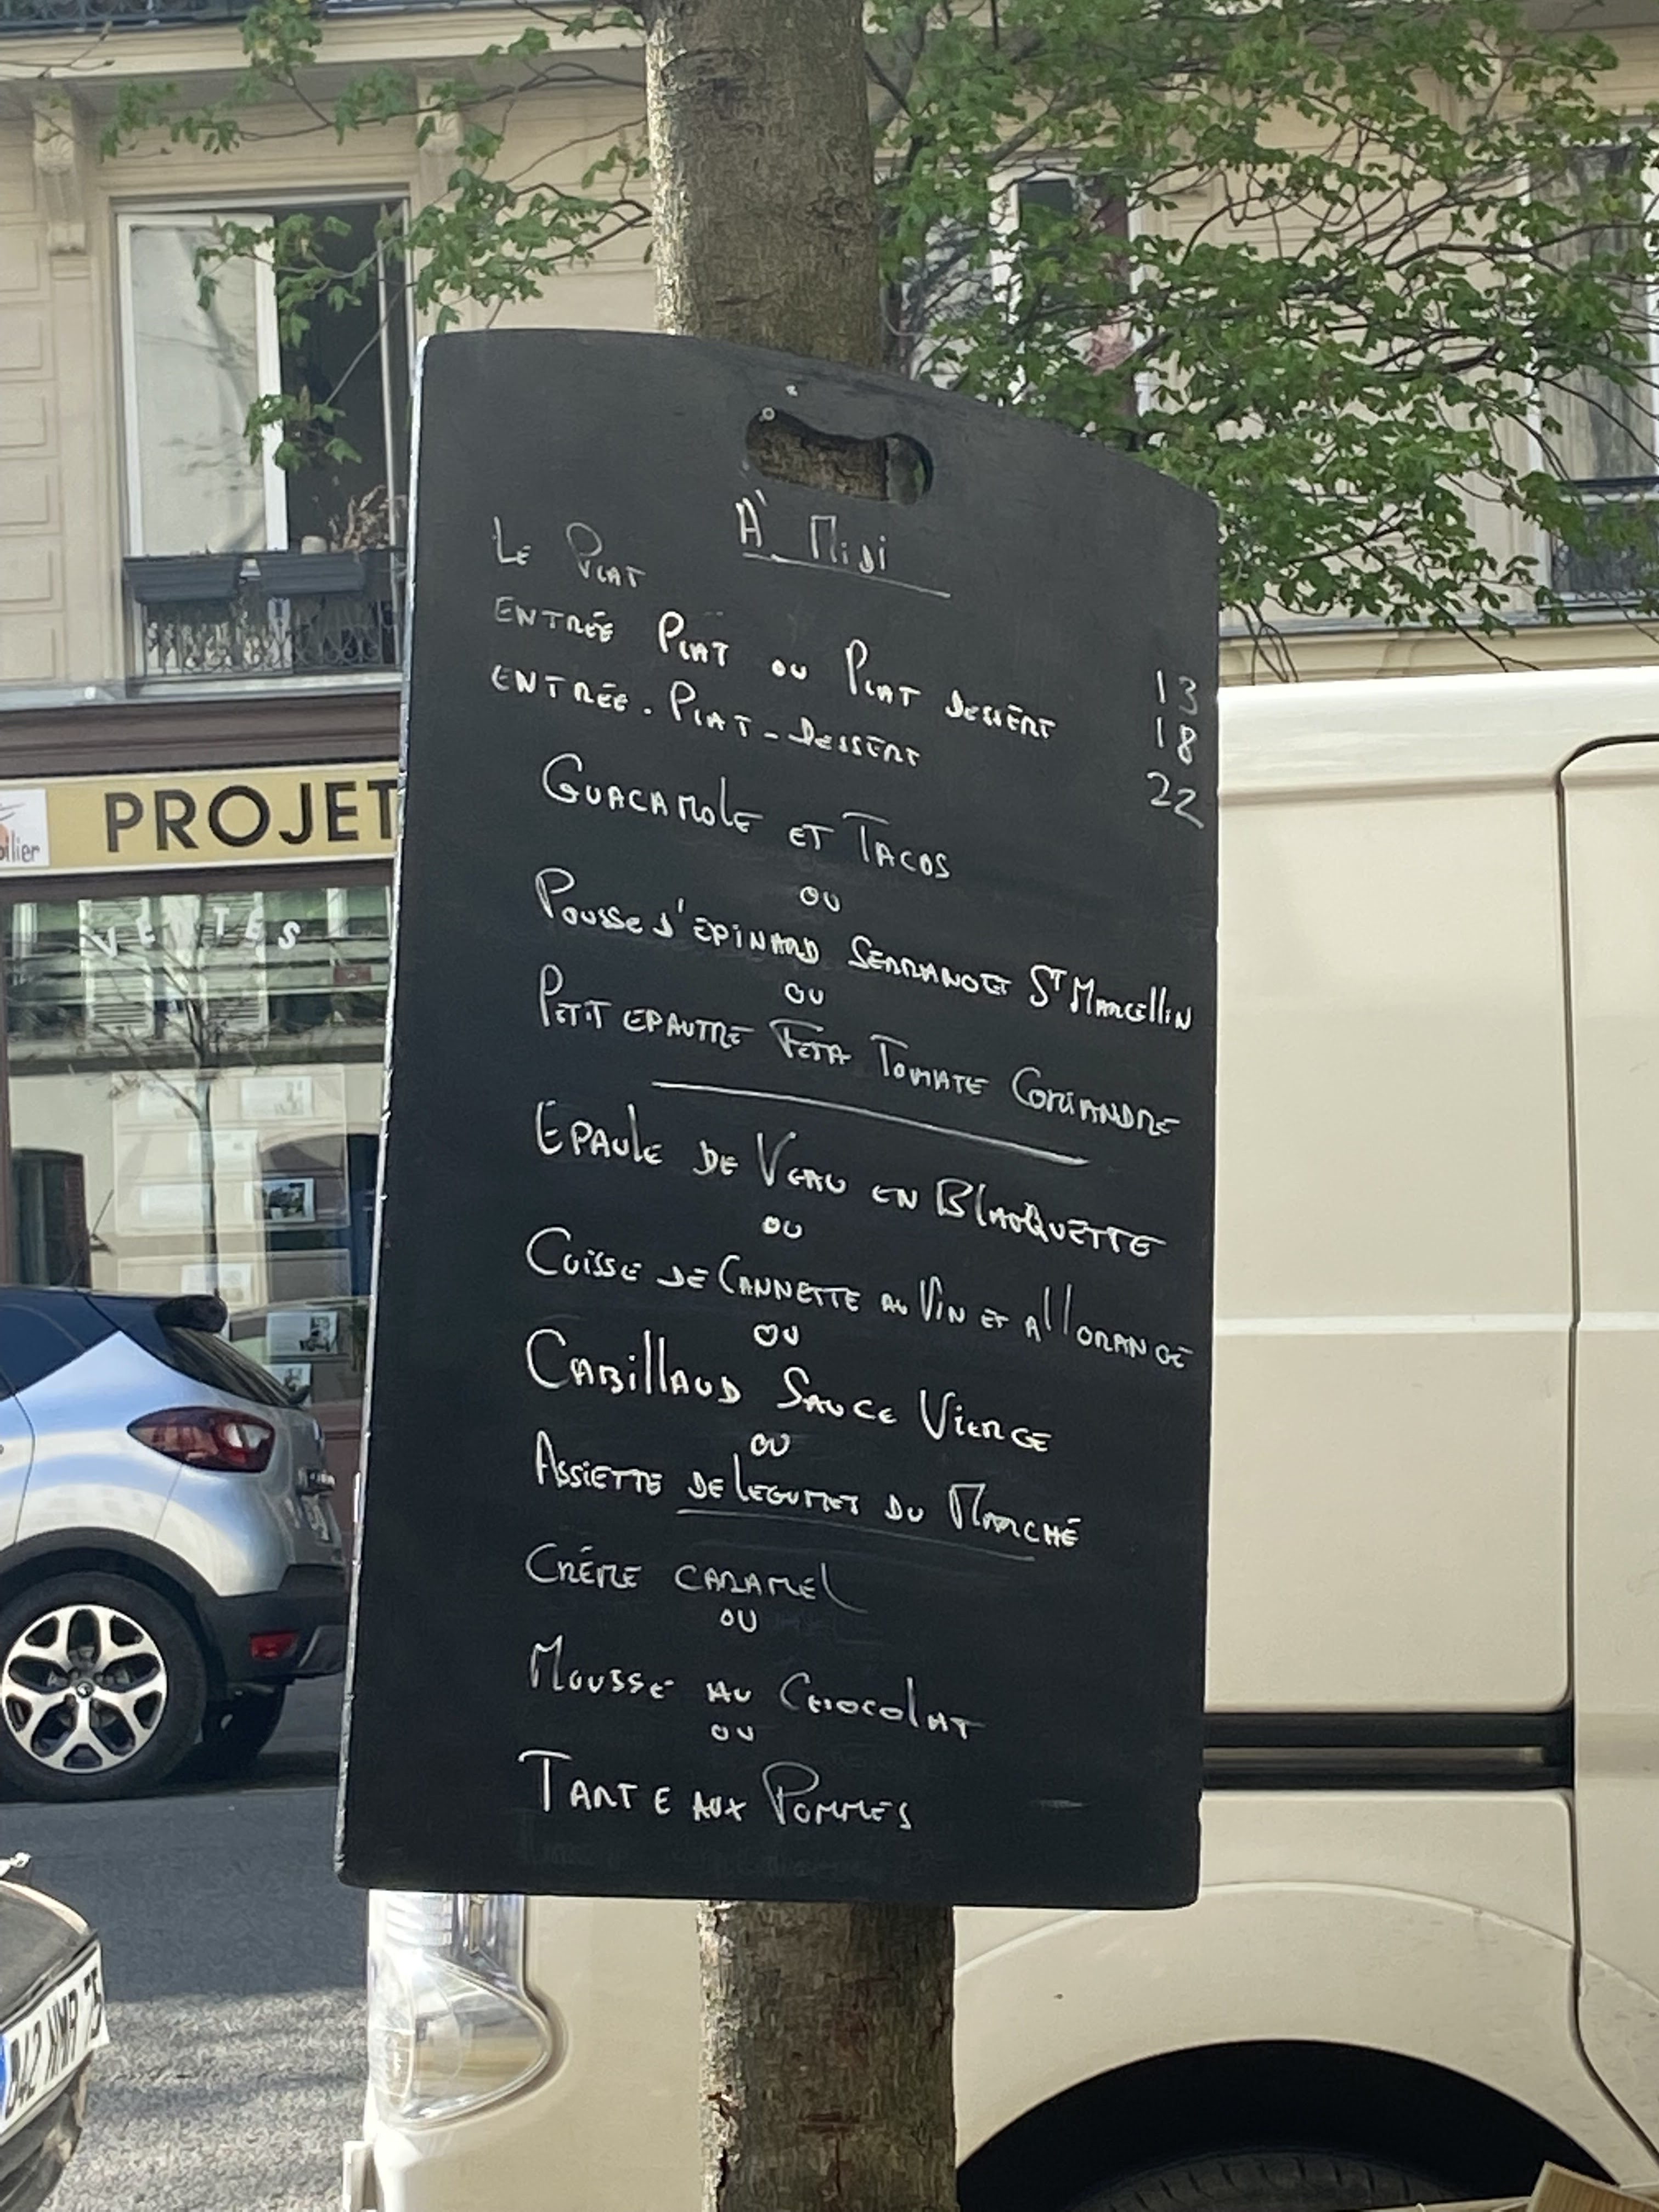 À Midi
LE PLAT 13
ENTRÉE PLAT OU PLAT DESSERT 18
ENTRÉE . PLAT - DESSERT 22
GUACAMOLE ET TACOS
OU
POUSSE D'EPINARD SERRANO ET ST MARCELLIN
OU
PETIT EPAUTRE FETA TOMATE CORIANDRE
EPAULE DE VEAU EN BLANQUETTE
OU
CUISSE DE CANNETTE AU VIN ET A L'ORANGE
OU
CABILLAUD SAUCE VIERGE
OU
ASSIETTE DE LEGUMES DU MARCHÉ
CRÉME CARAMEL
OU
MOUSSE AU CHOCOLAT
OU
TARTE AUX POMMES
PROJET
bilier
VENTES
842 HMR 75